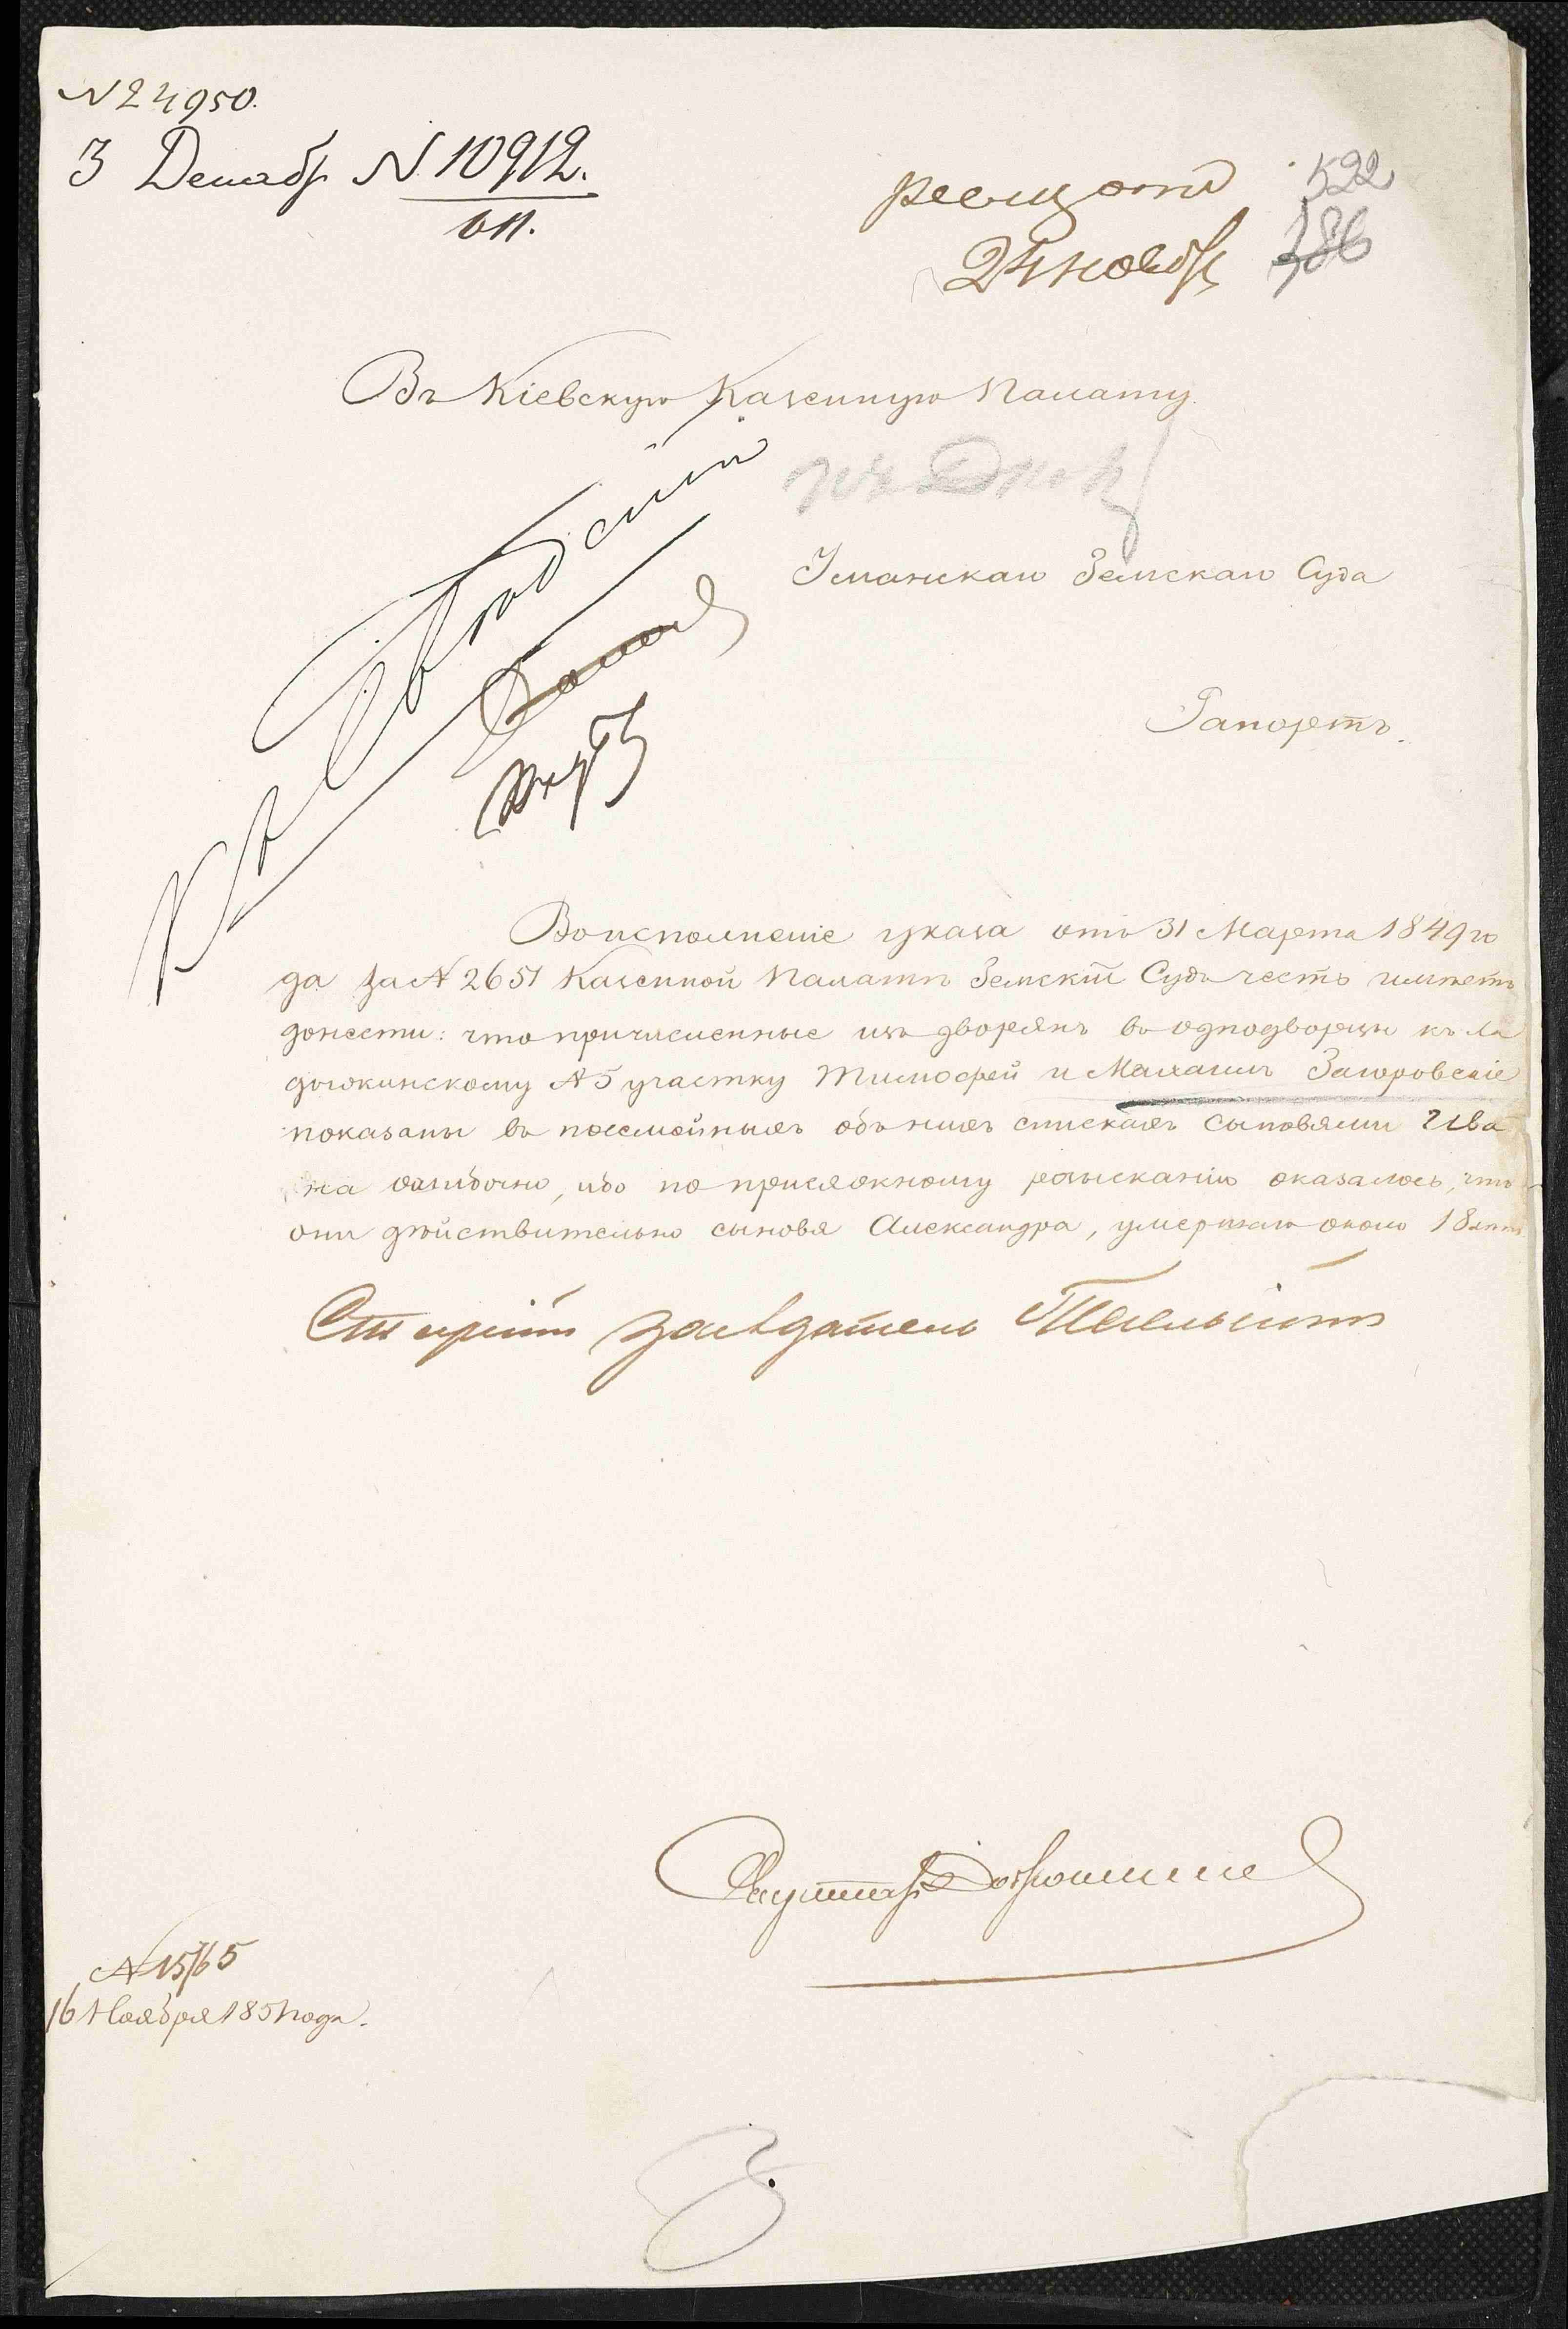 N 24950.
3 Декабр N 10912.
оп.
522
386
24 ноябр
Въ Кіевскую Казенную Палату.
Уманскаго Земскаго Суда
Рапортъ.
Во исполненіе указа отъ 31 Марта 1849 го
да за N 2651 Казенной Палатѣ Земскій Судъ честь имѣетъ
донести: что причисленные изъ дворянъ въ однодворцы къ Ла
дыжинскому N 5 участку Тимофей и Михаилъ Загоровскіе
показаны въ посемейныхъ объ нихъ спискахъ сыновями Ива
на ошибочно, ибо по присяжному розысканію оказалось, что
они дѣйствительно сыновя Александра, умершаго около 18 лѣтъ
Старшій засѣдатель
N 15765
16 Ноября 1851 года.